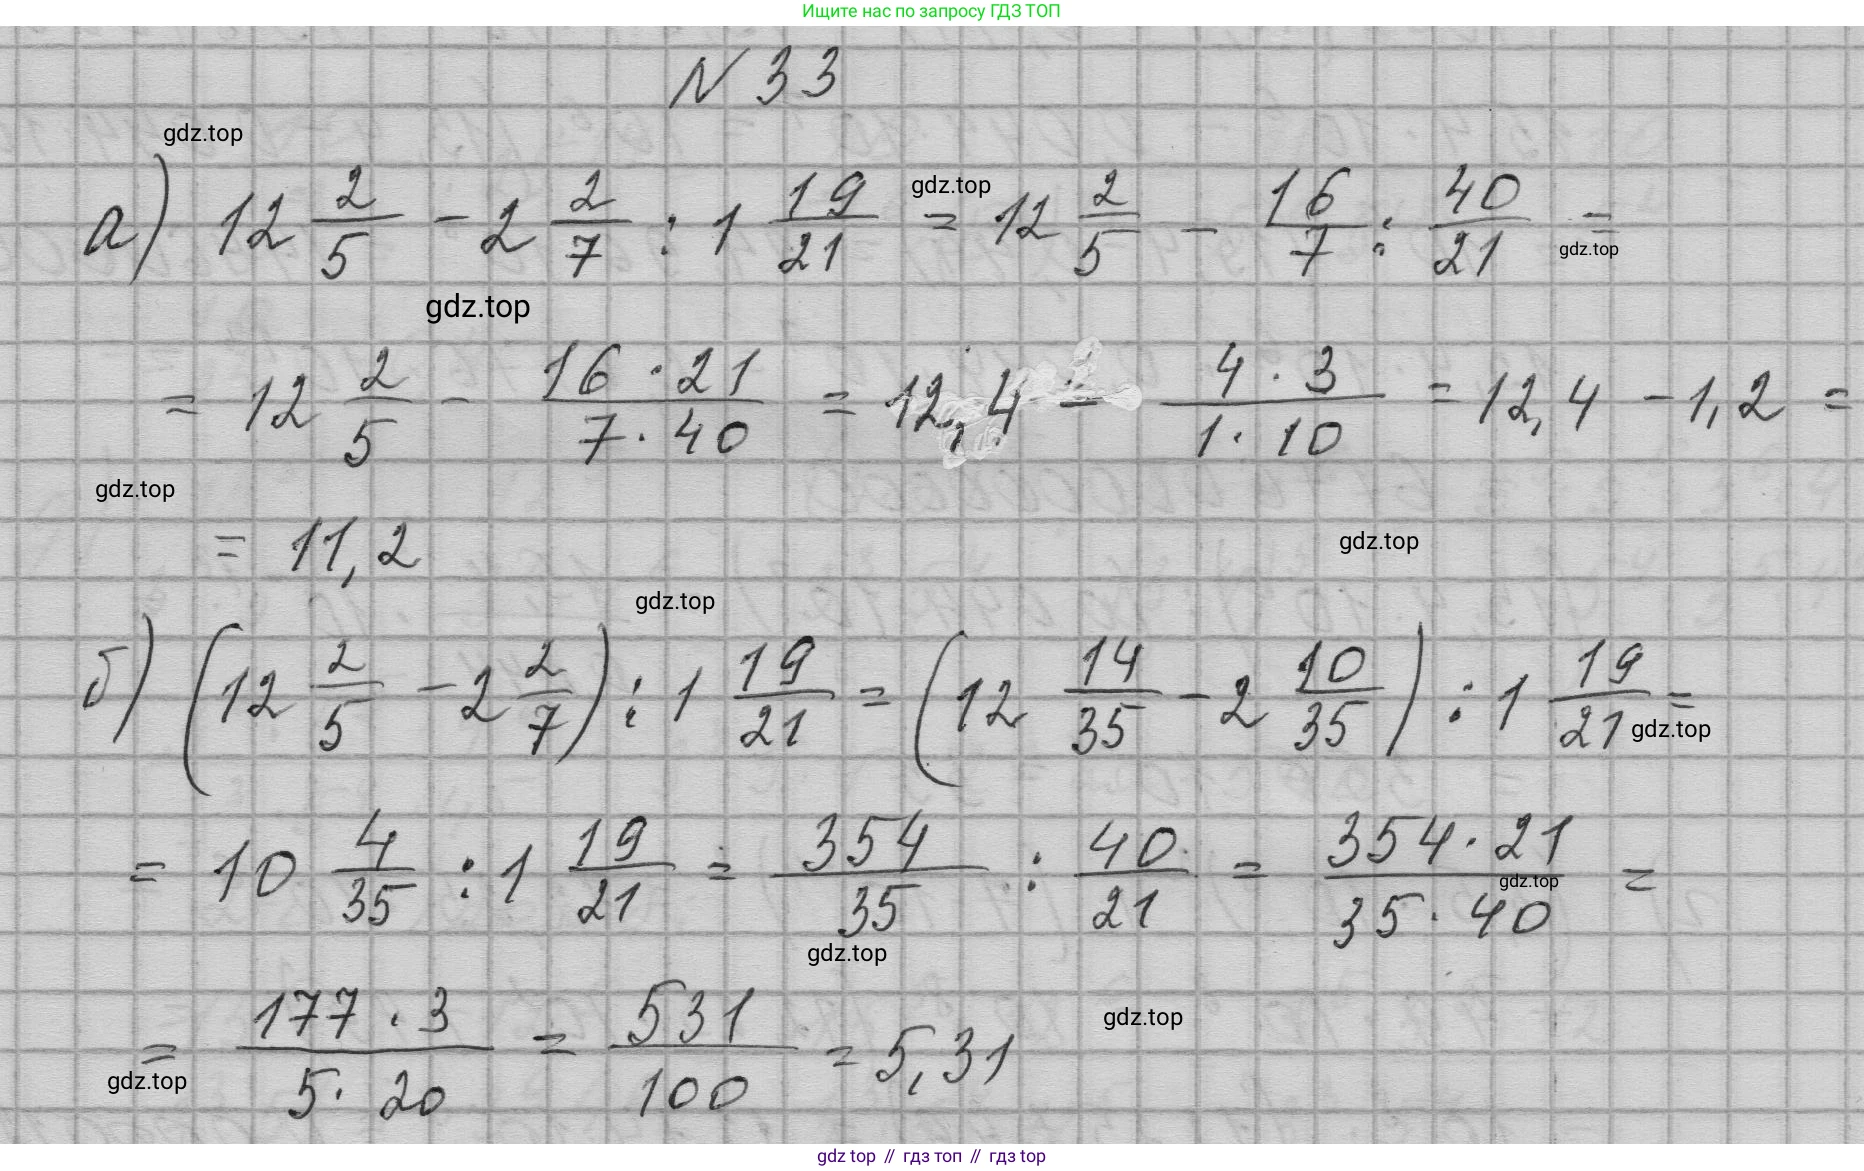 Ищите нас по запросу ГДЗ ТОП
N 33
gdz.top
а) 12 2/5 - 2 2/7 : 1 19/21 = 12 2/5 - 16/7 : 40/21 =
gdz.top
gdz.top
gdz.top
= 12 2/5 - 16 · 21 / 7 · 40 = 12,4 - 4 · 3 / 1 · 10 = 12,4 - 1,2 =
gdz.top
= 11,2
gdz.top
gdz.top
б) (12 2/5 - 2 2/7) : 1 19/21 = (12 14/35 - 2 10/35) : 1 19/21 =
gdz.top
= 10 4/35 : 1 19/21 = 354/35 : 40/21 = 354 · 21 / 35 · 40 =
gdz.top
gdz.top
= 177 · 3 / 5 · 20 = 531/100 = 5,31
gdz.top
gdz.top
gdz top // гдз топ // гдз top